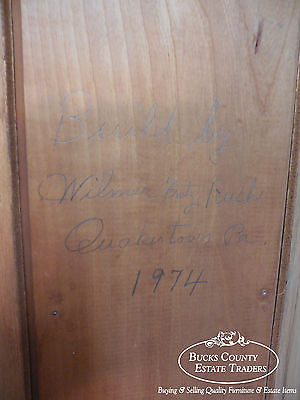 Build by
Wilmer
Quakertown Pa.
1974
BUCKS COUNTY
ESTATE TRADERS
Buying & Selling Quality Furniture & Estate Items